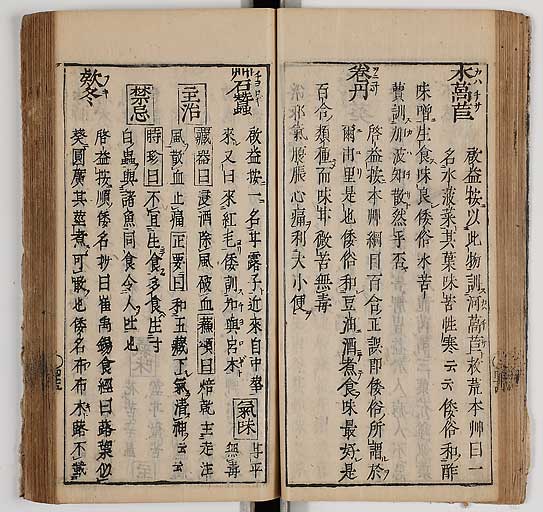 水萵苣
啟益按以此物訓河萵苣救荒本艸曰一
名水菠菜其葉味苦性寒云云倭俗和酢
味噌生食味良倭俗水苦
賈訓加波知散然乎否
卷丹
啓益按本艸綱目百合正誤即倭俗所謂於
爾由里是也倭俗和豆油酒煮食味最好是
百合類種而味甘微苦無毒
治邪氣腹脹心痛利大小便
艸石蠶
啟益按一名甘露子近來自中華
來又曰來紅毛倭訓知與呂木 氣味 甘平無毒
主治 藏器曰浸酒除風破血蘇頌曰焙乾主走注
風散血止痛正要曰和五藏下氣清神云云
禁忌 時珍曰不宜生食多食生寸
白蟲與諸魚同食令人吐也
欵冬
啓益按順倭名抄曰崔禹錫食經曰蕗葉似
葵圓廣其莖煮可噉也倭名布布木蕗不載